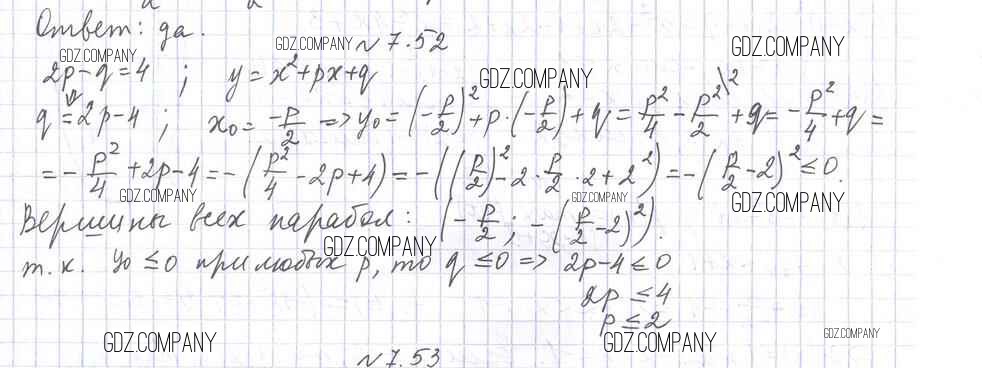 Ответ: да.
GDZ.COMPANY GDZ.COMPANY №7.52 GDZ.COMPANY
2p-q=4 ; y=x²+px+q GDZ.COMPANY
q=2p-4 ; x₀=-p/2 => y₀=(-p/2)²+p·(-p/2)+q=p²/4-p²/2\²+q=-p²/4+q=
=-p²/4+2p-4=-(p²/4-2p+4)=-((p/2)²-2·p/2·2+2²)=-(p/2-2)²≤0.
GDZ.COMPANY GDZ.COMPANY GDZ.COMPANY
Вершины всех парабол: (-p/2; -(p/2-2)²).
GDZ.COMPANY
т.к. y₀≤0 при любых p, то q≤0 => 2p-4≤0
2p≤4
p≤2
GDZ.COMPANY GDZ.COMPANY GDZ.COMPANY
№7.53